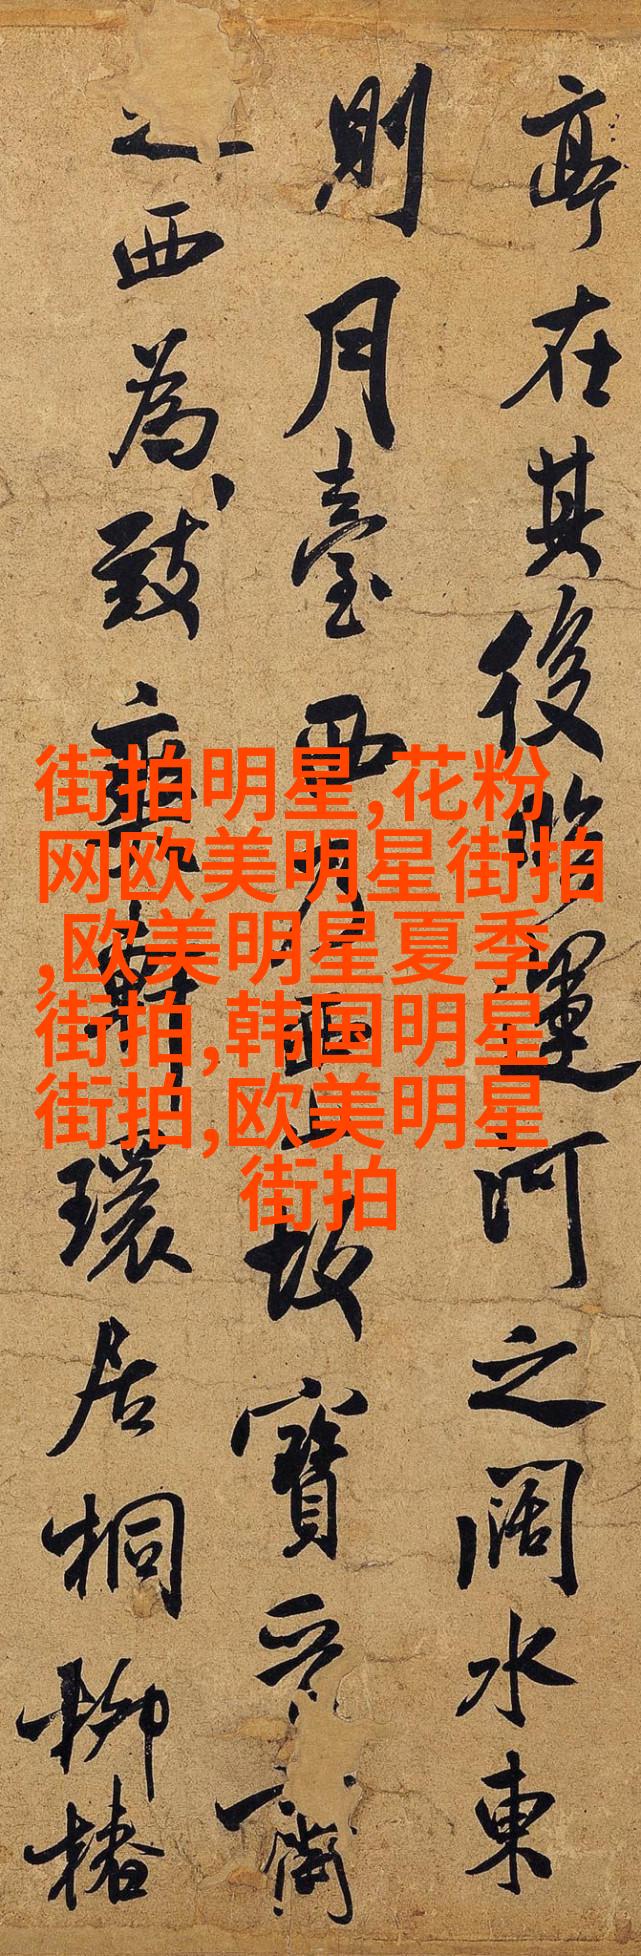 亭在其後臨運河之闊水東
則月臺西乃西山故寶晉齋
之西為致爽軒環居桐柳椿
街拍明星,花粉
网欧美明星街拍
,欧美明星夏季
街拍,韩国明星
街拍,欧美明星
街拍